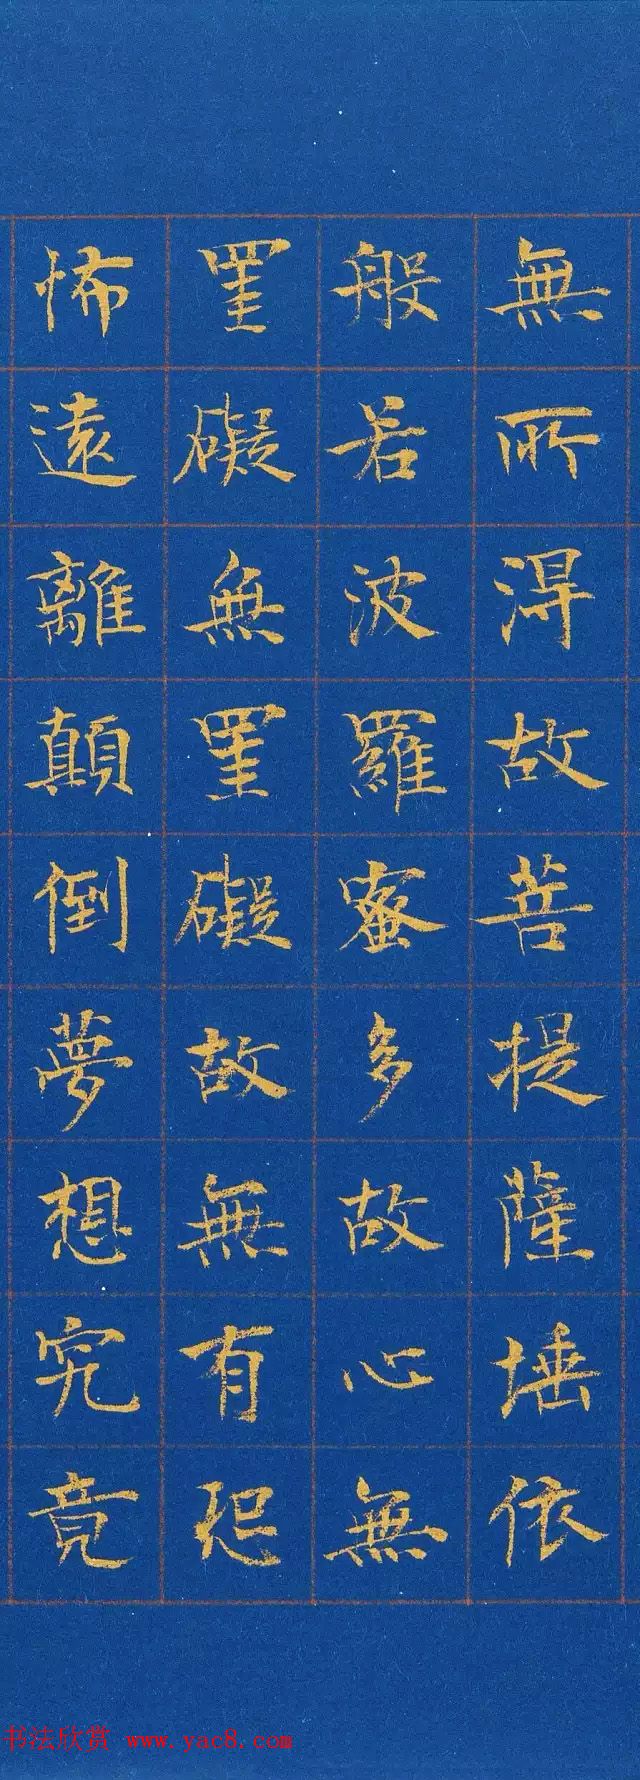 無所得故菩提薩埵依
般若波羅蜜多故心無
罣礙無罣礙故無有恐
怖遠離顛倒夢想究竟
书法欣赏 www.yac8.com